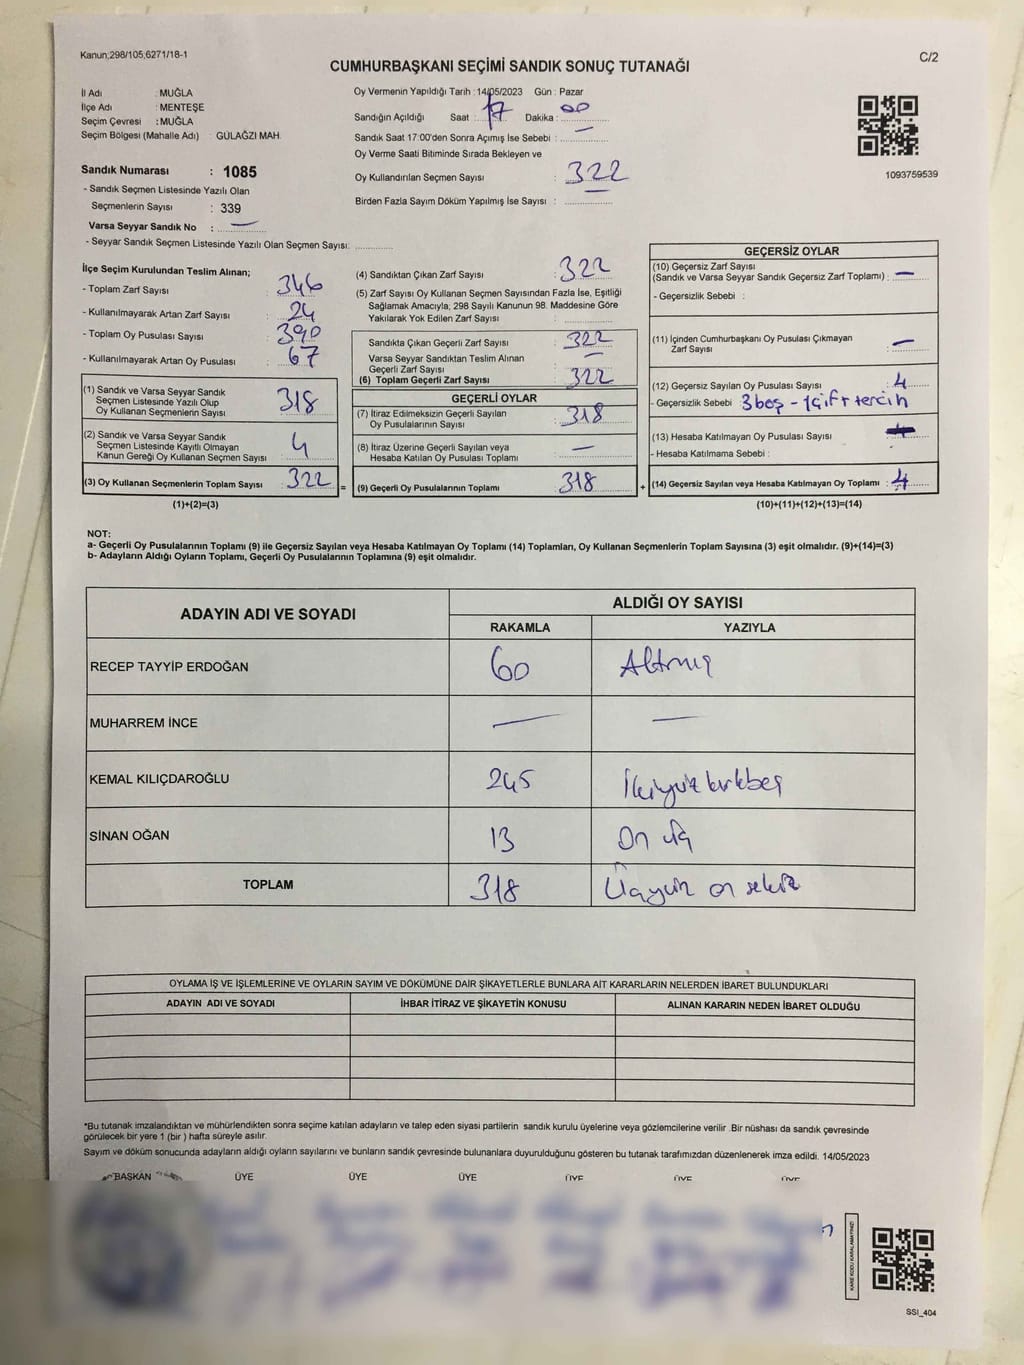 Kanun;298/105;6271/18-1
C/2
CUMHURBAŞKANI SEÇİMİ SANDIK SONUÇ TUTANAĞI
İl Adı : MUĞLA
İlçe Adı : MENTEŞE
Seçim Çevresi : MUĞLA
Seçim Bölgesi (Mahalle Adı) : GÜLAĞZI MAH.
Sandık Numarası : 1085
- Sandık Seçmen Listesinde Yazılı Olan
Seçmenlerin Sayısı : 339
Varsa Seyyar Sandık No : —
- Seyyar Sandık Seçmen Listesinde Yazılı Olan Seçmen Sayısı:
Oy Vermenin Yapıldığı Tarih : 14/05/2023 Gün : Pazar
Sandığın Açıldığı Saat : 17 Dakika : 00
Sandık Saat 17:00'den Sonra Açımış İse Sebebi : —
Oy Verme Saati Bitiminde Sırada Bekleyen ve
Oy Kullandırılan Seçmen Sayısı : 322
Birden Fazla Sayım Döküm Yapılmış İse Sayısı : —
1093759539
İlçe Seçim Kurulundan Teslim Alınan;
- Toplam Zarf Sayısı : 346
- Kullanılmayarak Artan Zarf Sayısı : 24
- Toplam Oy Pusulası Sayısı : 390
- Kullanılmayarak Artan Oy Pusulası : 67
(1) Sandık ve Varsa Seyyar Sandık
Seçmen Listesinde Yazılı Olup
Oy Kullanan Seçmenlerin Sayısı : 318
(2) Sandık ve Varsa Seyyar Sandık
Seçmen Listesinde Kayıtlı Olmayan
Kanun Gereği Oy Kullanan Seçmen Sayısı : 4
(3) Oy Kullanan Seçmenlerin Toplam Sayısı : 322 =
(1)+(2)=(3)
(4) Sandıktan Çıkan Zarf Sayısı : 322
(5) Zarf Sayısı Oy Kullanan Seçmen Sayısından Fazla İse, Eşitliği
Sağlamak Amacıyla, 298 Sayılı Kanunun 98. Maddesine Göre
Yakılarak Yok Edilen Zarf Sayısı :
Sandıkta Çıkan Geçerli Zarf Sayısı : 322
Varsa Seyyar Sandıktan Teslim Alınan
Geçerli Zarf Sayısı : —
(6) Toplam Geçerli Zarf Sayısı : 322
GEÇERLİ OYLAR
(7) İtiraz Edilmeksizin Geçerli Sayılan
Oy Pusulalarının Sayısı : 318
(8) İtiraz Üzerine Geçerli Sayılan veya
Hesaba Katılan Oy Pusulası Toplamı : —
(9) Geçerli Oy Pusulalarının Toplamı : 318 +
GEÇERSİZ OYLAR
(10) Geçersiz Zarf Sayısı
(Sandık ve Varsa Seyyar Sandık Geçersiz Zarf Toplamı) : —
- Geçersizlik Sebebi :
(11) İçinden Cumhurbaşkanı Oy Pusulası Çıkmayan
Zarf Sayısı : —
(12) Geçersiz Sayılan Oy Pusulası Sayısı : 4
- Geçersizlik Sebebi : 3 boş - 1 çift tercih
(13) Hesaba Katılmayan Oy Pusulası Sayısı :
- Hesaba Katılmama Sebebi :
(14) Geçersiz Sayılan veya Hesaba Katılmayan Oy Toplamı : 4
(10)+(11)+(12)+(13)=(14)
NOT:
a- Geçerli Oy Pusulalarının Toplamı (9) ile Geçersiz Sayılan veya Hesaba Katılmayan Oy Toplamı (14) Toplamları, Oy Kullanan Seçmenlerin Toplam Sayısına (3) eşit olmalıdır. (9)+(14)=(3)
b- Adayların Aldığı Oyların Toplamı, Geçerli Oy Pusulalarının Toplamına (9) eşit olmalıdır.
ADAYIN ADI VE SOYADI ALDIĞI OY SAYISI
RAKAMLA YAZIYLA
RECEP TAYYİP ERDOĞAN 60 Altmış
MUHARREM İNCE — —
KEMAL KILIÇDAROĞLU 245 İkiyüz kırkbeş
SİNAN OĞAN 13 On üç
TOPLAM 318 Üçyüz on sekiz
OYLAMA İŞ VE İŞLEMLERİNE VE OYLARIN SAYIM VE DÖKÜMÜNE DAİR ŞİKAYETLERLE BUNLARA AİT KARARLARIN NELERDEN İBARET BULUNDUKLARI
ADAYIN ADI VE SOYADI İHBAR İTİRAZ VE ŞİKAYETİN KONUSU ALINAN KARARIN NEDEN İBARET OLDUĞU
*Bu tutanak imzalandıktan ve mühürlendikten sonra seçime katılan adayların ve talep eden siyasi partilerin sandık kurulu üyelerine veya gözlemcilerine verilir .Bir nüshası da sandık çevresinde
görülecek bir yere 1 (bir ) hafta süreyle asılır.
Sayım ve döküm sonucunda adayların aldığı oyların sayılarını ve bunların sandık çevresinde bulunanlara duyurulduğunu gösteren bu tutanak tarafımızdan düzenlenerek imza edildi. 14/05/2023
BAŞKAN ÜYE ÜYE ÜYE ÜYE ÜYE ÜYE
KARE KODU KARALAMAYINIZ!
SSI_404